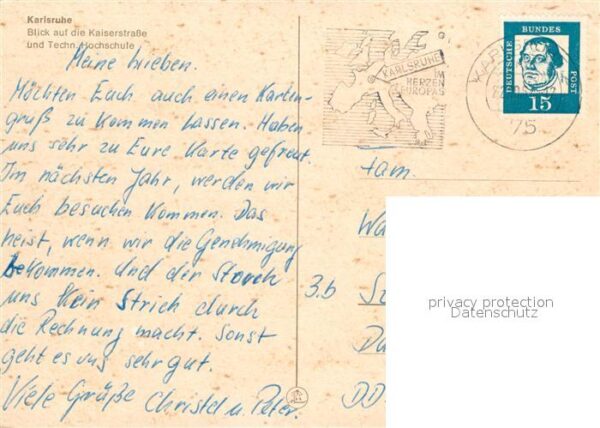 Karlsruhe
Blick auf die Kaiserstraße
und Techn. Hochschule
Meine Lieben.
Möchten Euch auch einen Karten-
gruß zu kommen lassen. Haben
uns sehr zu Eure Karte gefreut.
Im nächsten Jahr, werden wir
Euch besuchen kommen. Das
heist, wenn wir die Genehmigung
bekommen. Und der Storch
uns kein Strich durch
die Rechnung macht. Sonst
geht es uns sehr gut.
Viele Grüße Christel u. Peter.
KARLSRUHE
IM
HERZEN
EUROPAS
75
DEUTSCHE BUNDES POST
15
Fam.
Wa
3.b
Da
DD
privacy protection
Datenschutz